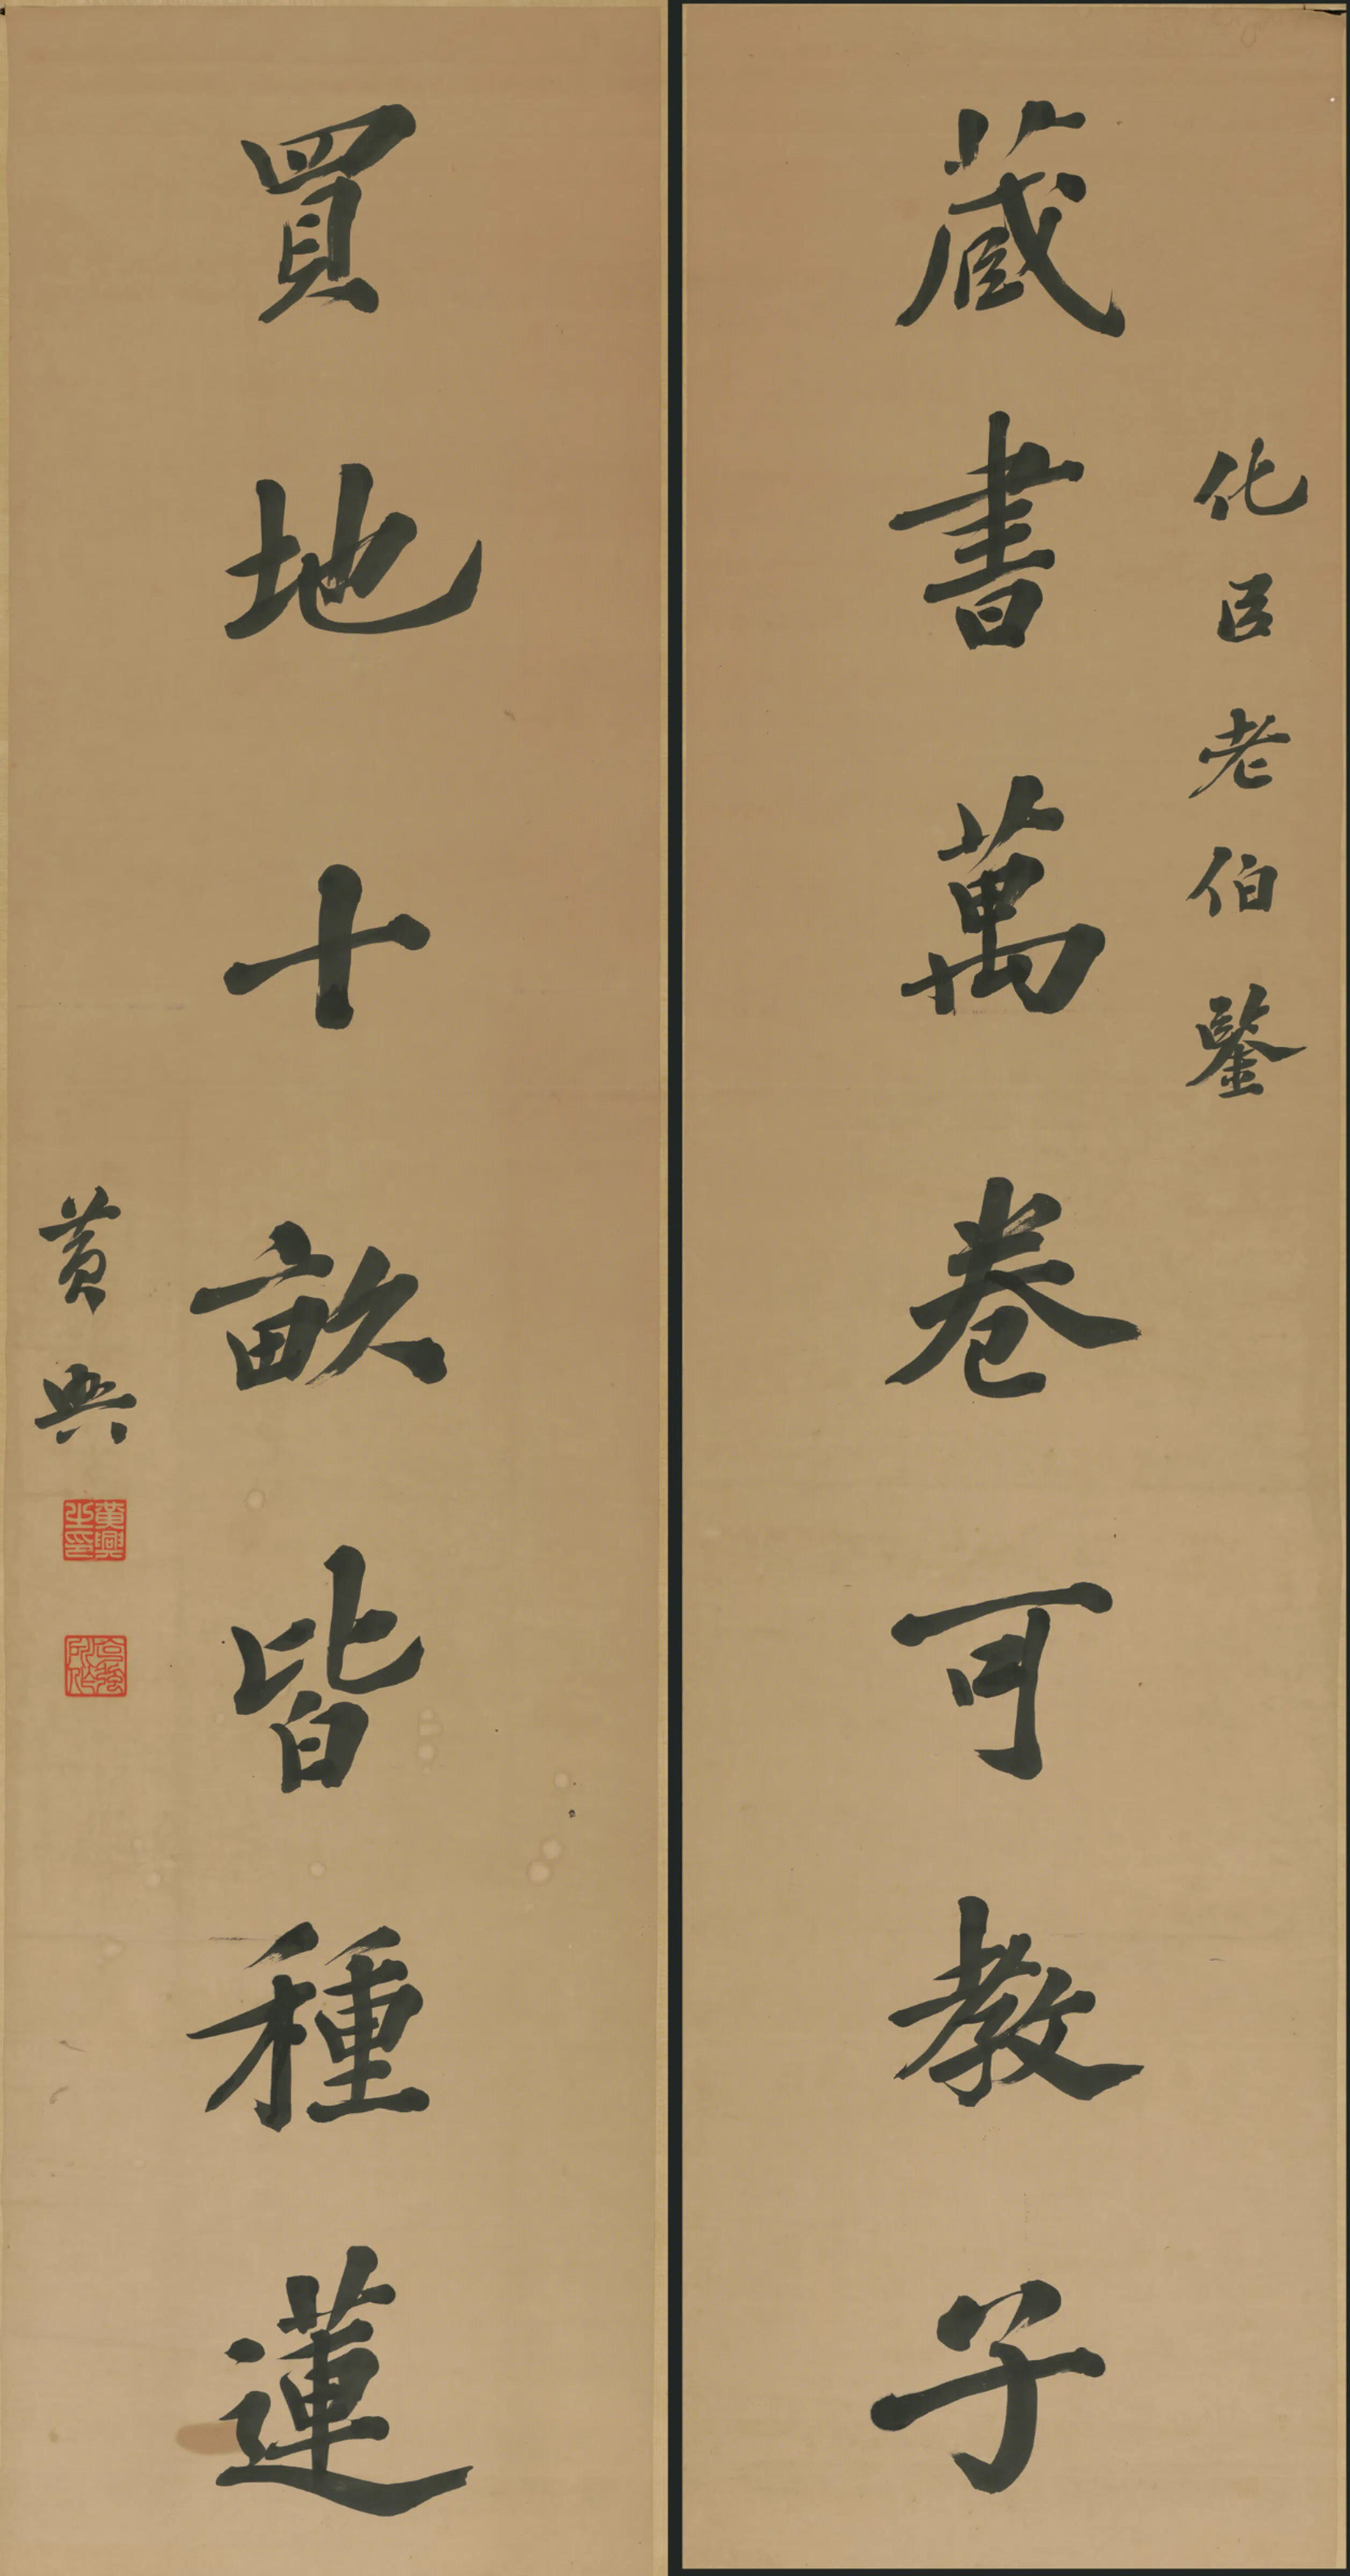 化臣老伯鑒
藏書萬卷可教子
買地十畝皆種蓮
黃興
黃興之印